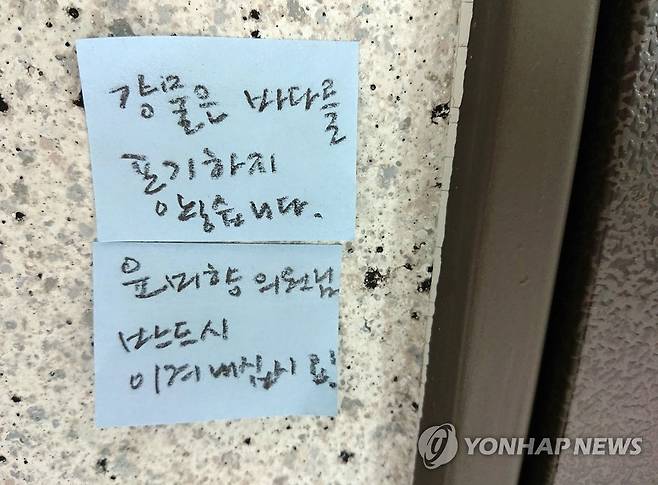 강물은 바다를
포기하지
않습니다.
윤미향 의원님
반드시
이겨내십시요!
YONHAP NEWS